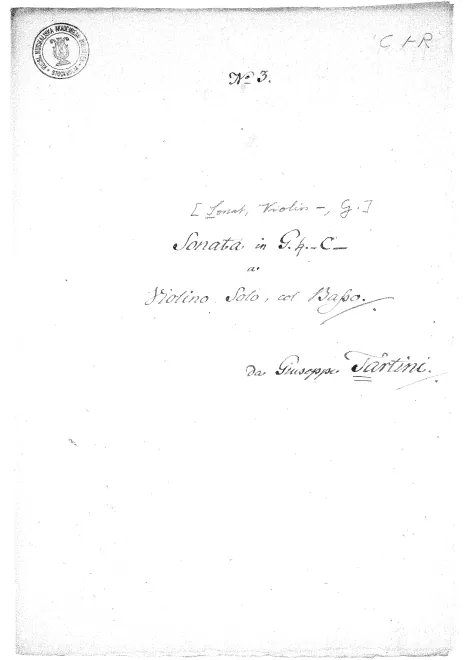 KONGL. MUSIKALISKA AKADEMIENS BIBLIOTEK
STOCKHOLM
C+R
No 3.
[Sonat, Violin -, G.]
Sonata in G.♮.-C-
a
Violino Solo, col Basso.
da Giuseppe Tartini.